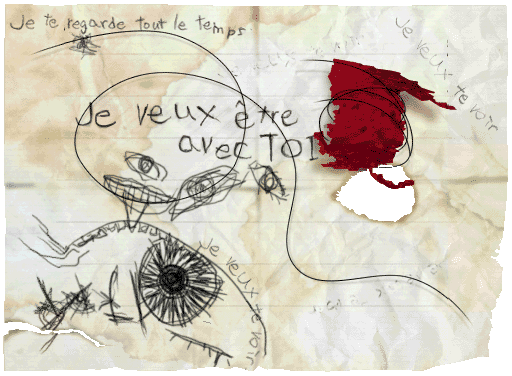 Je te regarde tout le temps
Je veux te voir
Je veux être
avec TOI
Je veux te voir